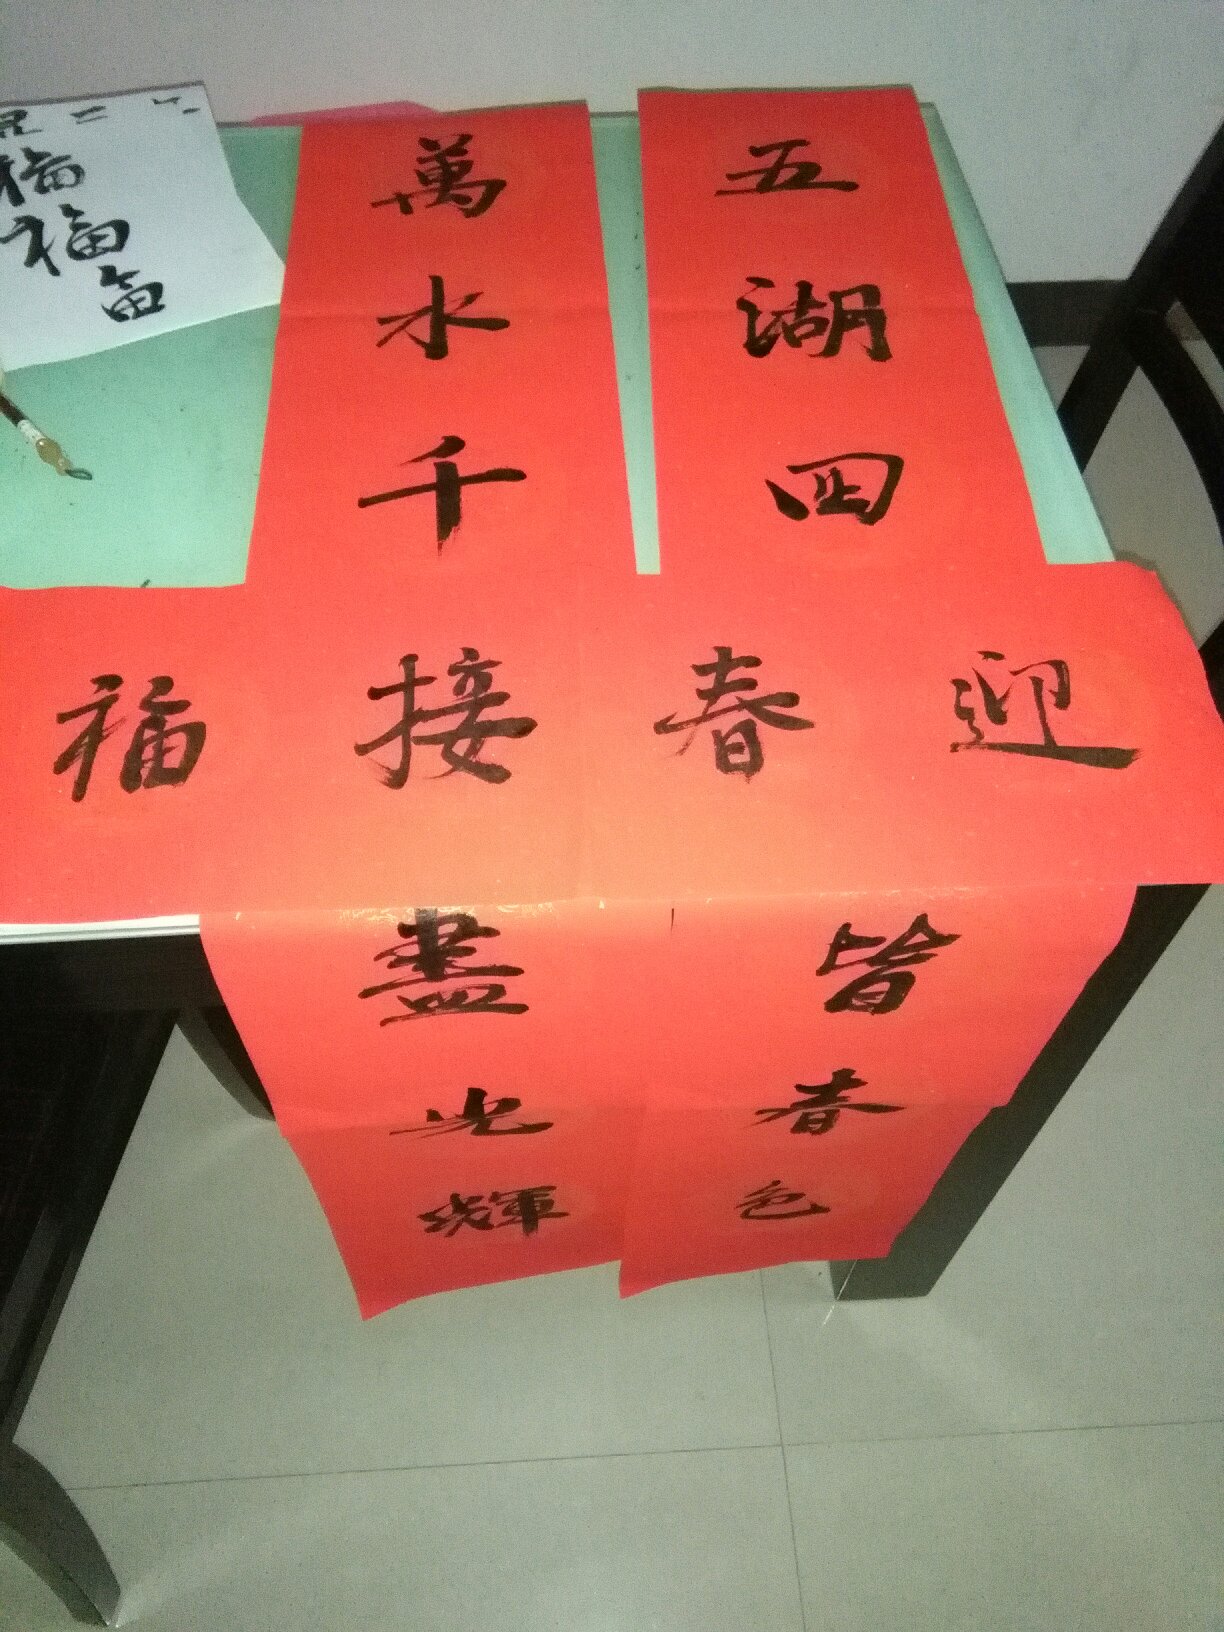 五湖四
皆春色
萬水千
盡光輝
迎春接福
福
福
畐